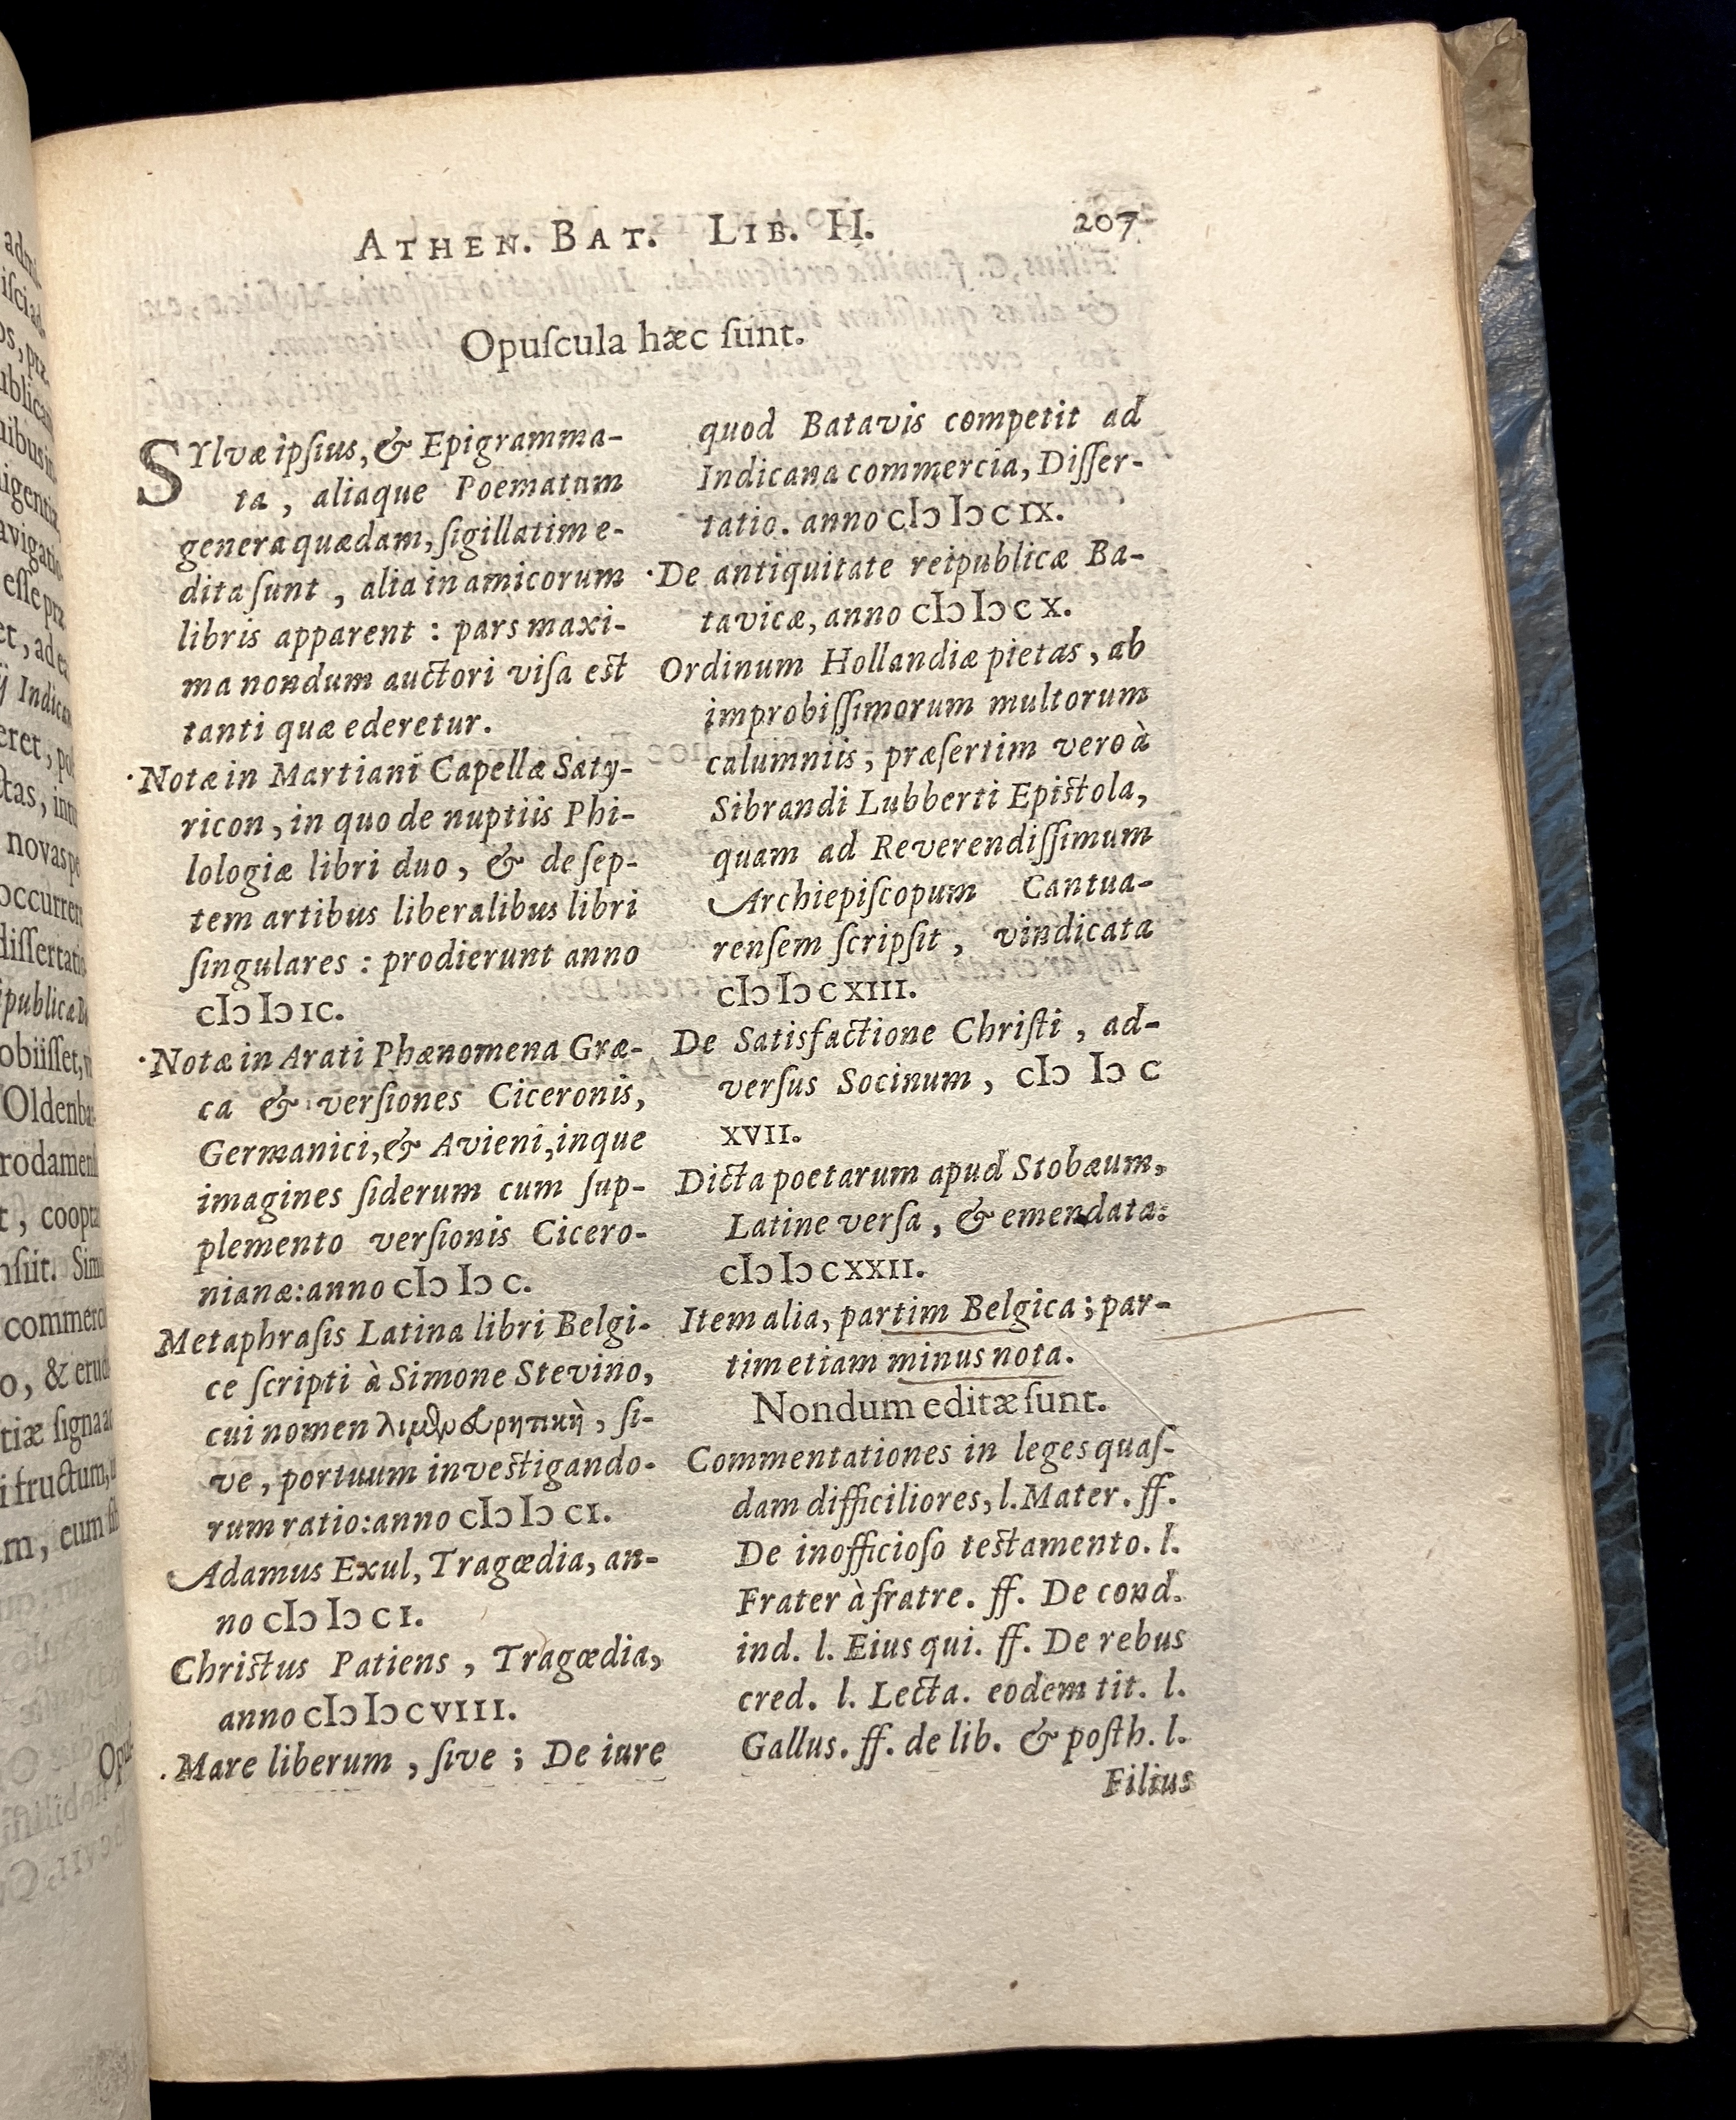 ATHEN. BAT. LIB. II.
207
Opuſcula hæc ſunt.
SYlvæ ipſius, & Epigramma-
ta, aliaque Poematum
genera quædam, ſigillatim e-
dita ſunt, alia in amicorum
libris apparent: pars maxi-
ma nondum auctori viſa est
tanti quæ ederetur.
·Notæ in Martiani Capellæ Saty-
ricon, in quo de nuptiis Phi-
lologiæ libri duo, & de ſep-
tem artibus liberalibus libri
ſingulares: prodierunt anno
cIↄ Iↄ IC.
·Notæ in Arati Phænomena Græ-
ca & verſiones Ciceronis,
Germanici, & Avieni, inque
imagines ſiderum cum ſup-
plemento verſionis Cicero-
nianæ: anno cIↄ Iↄ c.
Metaphraſis Latina libri Belgi-
ce ſcripti à Simone Stevino,
cui nomen , ſi-
ve, portuum investigando-
rum ratio: anno cIↄ Iↄ cI.
Adamus Exul, Tragœdia, an-
no cIↄ Iↄ c I.
Christus Patiens, Tragœdia,
anno cIↄ Iↄ c VIII.
.Mare liberum, ſive; De iure
quod Batavis competit ad
Indicana commercia, Diſſer-
tatio. anno cIↄ Iↄ c IX.
·De antiquitate reipublicæ Ba-
tavicæ, anno cIↄ Iↄ c X.
Ordinum Hollandiæ pietas, ab
improbiſſimorum multorum
calumniis; præſertim vero à
Sibrandi Lubberti Epistola,
quam ad Reverendiſſimum
Archiepiſcopum Cantua-
renſem ſcripſit, vindicata
cIↄ Iↄ c XIII.
De Satisfactione Chriſti, ad-
verſus Socinum, cIↄ Iↄ c
XVII.
Dicta poetarum apud Stobæum,
Latine verſa, & emendata:
cIↄ Iↄ c XXII.
Item alia, partim Belgica; par-
tim etiam minus nota.
Nondum editæ ſunt.
Commentationes in leges quaſ-
dam difficiliores, l. Mater. ff.
De inofficioſo testamento. l.
Frater à fratre. ff. De cond.
ind. l. Eius qui. ff. De rebus
cred. l. Lecta. eodem tit. l.
Gallus. ff. de lib. & poſth. l.
Filius